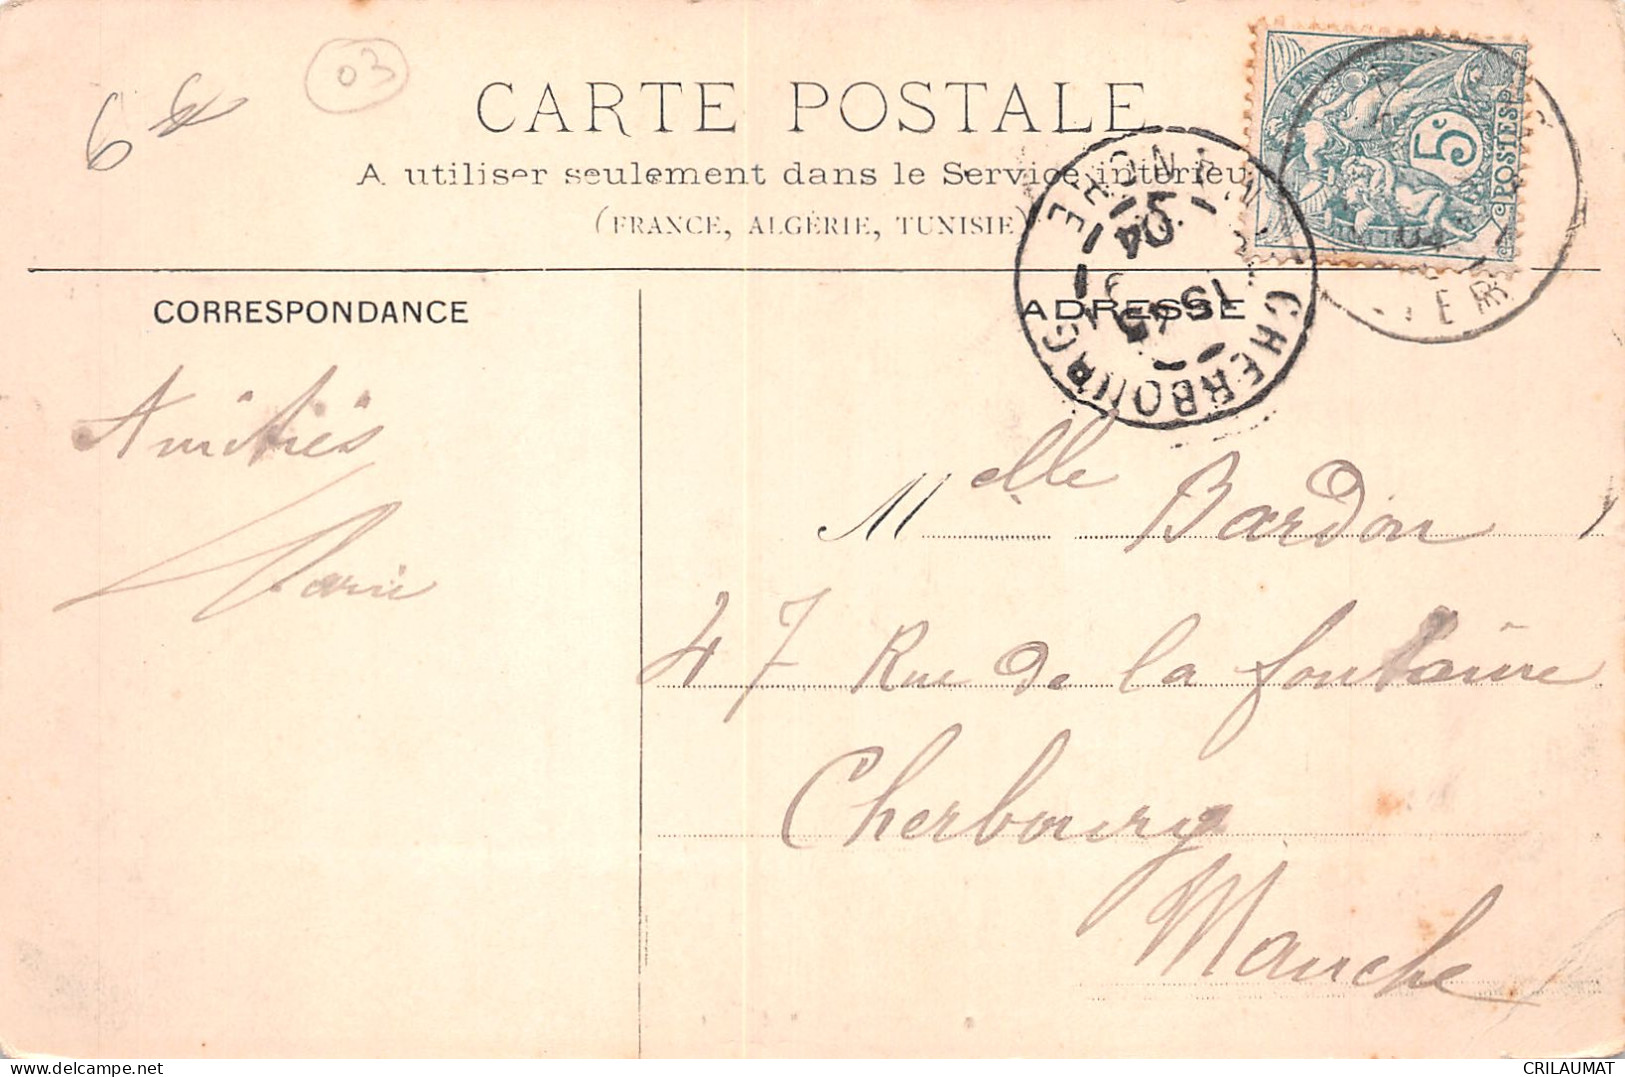 6
03
CARTE POSTALE
A utiliser seulement dans le Service intérieu
(FRANCE, ALGÉRIE, TUNISIE)
5c
POSTES
04
CHERBOURG
15
45
04
CORRESPONDANCE
ADRESSE
Amitiés
Marie
Melle Bardon
47 Rue de la fontaine
Cherbourg
Manche
CRILAUMAT